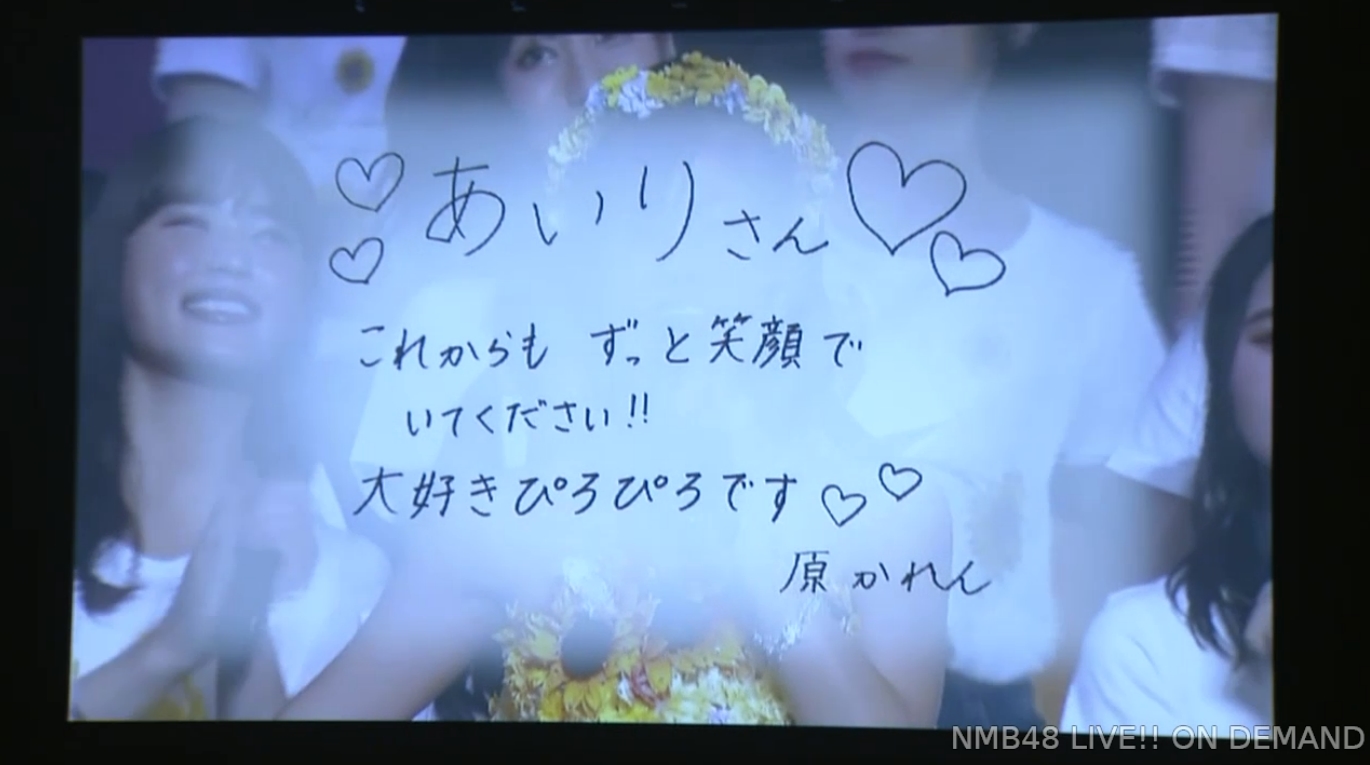 ♡あいりさん♡
これからも ずっと笑顔で
いてください!!
大好きぴろぴろです♡♡
原かれん
NMB48 LIVE!! ON DEMAND